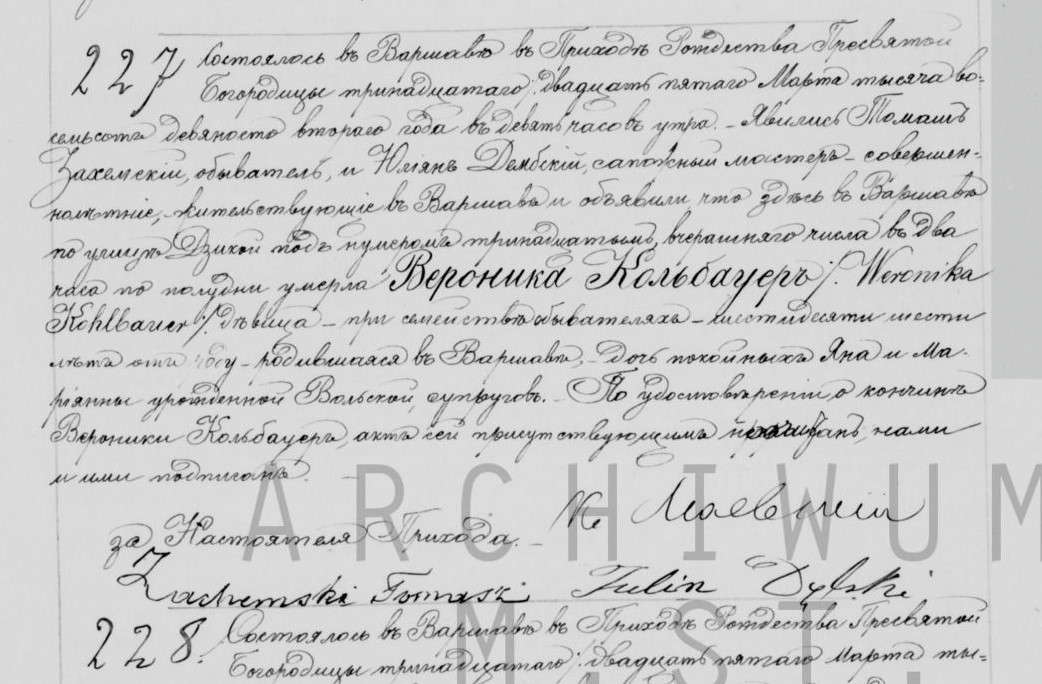 227 Состоялось въ Варшавѣ въ Приходѣ Рождества Пресвятой
Богородицы тринадцатаго /: двадцать пятаго Марта тысяча во-
семьсотъ девяносто втораго года въ девять часовъ утра. – Явились Томашъ
Захемскій, обыватель, и Юліянъ Дембскій, сапожный мастеръ – совершен-
нолѣтніе, – жительствующіе въ Варшавѣ и объявили, что здѣсь въ Варшавѣ
по улицѣ Дзикой подъ нумеромъ тринадцатымъ, вчерашняго числа въ два
часа по полудни умерла Вероника Кольбауеръ /: Weronika
Kohlbauer :/ дѣвица – при семействѣ обывателяхъ – шестидесяти шести
лѣтъ отъ роду – родившаяся въ Варшавѣ, – дочь покойныхъ Яна и Ма-
ріянны урожденной Вольской, супруговъ. – По удостовѣреніи о кончинѣ
Вероники Кольбауеръ, актъ сей присутствующимъ прочитанъ, нами
и ими подписанъ. –
за Настоятеля Прихода. –
Zachemski Tomasz
228. Состоялось въ Варшавѣ въ Приходѣ Рождества Пресвятой
Богородицы тринадцатаго /: двадцать пятаго Марта ты-
ARCHIWUM
M.ST.